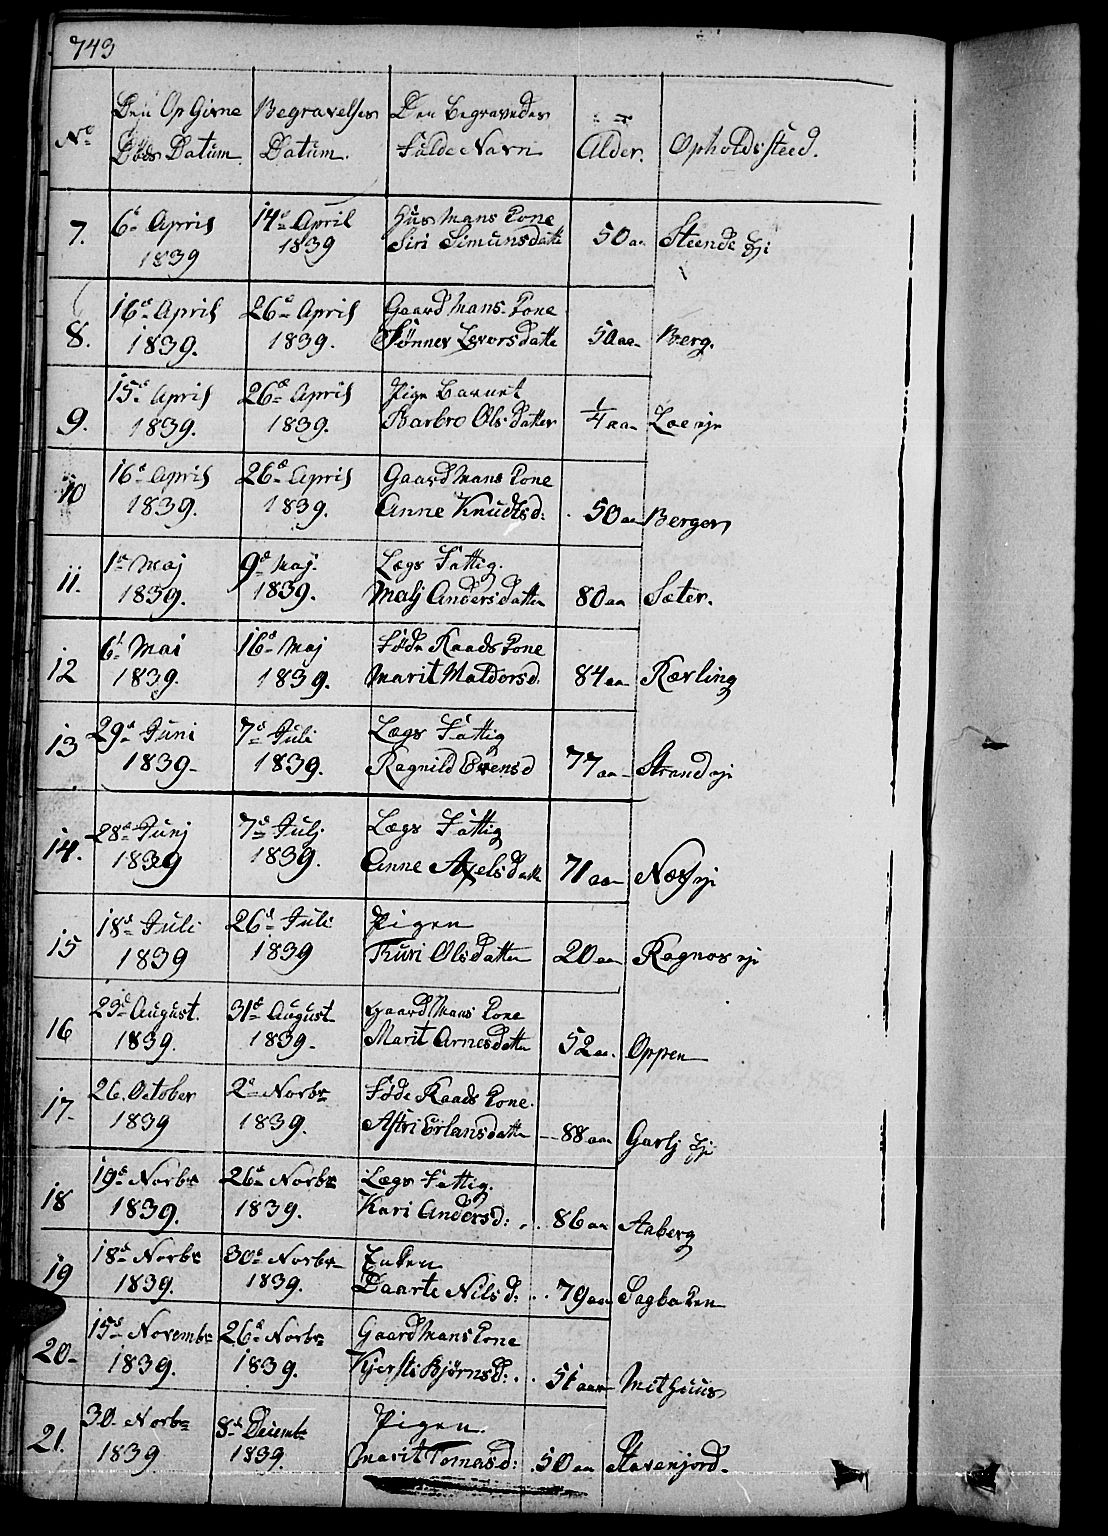 743
No Den Op Givne Begravelses Den Begravedes Alder. Opholdssteed.
Døds Datum. Datum. Fulde Navn
7. 6te April 14de April Huus Mans Kone
1839 1839 Siri Simunsdatte 50 aar Steende Eji
8. 16de April 26de April Gaard Mans Kone
1839. 1839. Rønnev Levorsdatte 50 aar Berg.
9. 15de April 26de April Pige Barnet
1839. 1839. Barbro Olsdatter 1/4 aar Loe eje
10 16de April 26de April Gaard Mans Kone
1839. 1839. Anne Knudtsd: 50 aar Bergen
11. 1te Maj 9de Maj.
1839. 1839. Lægs Fattig.
Malj Andersdatter 80 aar Sæter.
12 6te Mai 16de Maj Føde Raads Kone
1839. 1839. Marit Haldorsd. 84 aar Kærling
13 29de Juni 7de Juli Lægs Fattig
1839- 1839. Ragnild Evensd 77 aar Strand eje
14. 28de Junj 7de Julj Lægs Fattig
1839 1839. Anne Axelsdatte 71 aar Næs eje
15 18de Juli 26de Juli Pigen
1839 1839 Thuri Olsdatter 20 aar Ragnos eje
16 23de August. 31de August Gaard Mans Kone
1839. 1839- Marit Arnesdatte 52 aar. Oppen
17. 26. October 2de Novbr Føde Raads Kone.
1839 1839. Astri Erlansdatte 88 aar Garlj Eje
18 19de Novbr 26de Novbr Lægs Fattig.
1839. 1839. Kari Andersd: 86 aar Aaberg
19 18de Novbr 30de Novbr Enken
1839. 1839. Daarte Nilsd: 79 aar Sagbaken
20- 15de Novembr 26de Novbr Gaard Mans Kone
1839. 1839. Kjersti Bjørnsd: 51 aar Mithuus
21. 30- Novbr 8de Decembr Pigen.
1839 1839. Marit Tomasd: 50 aar Stavenjord.